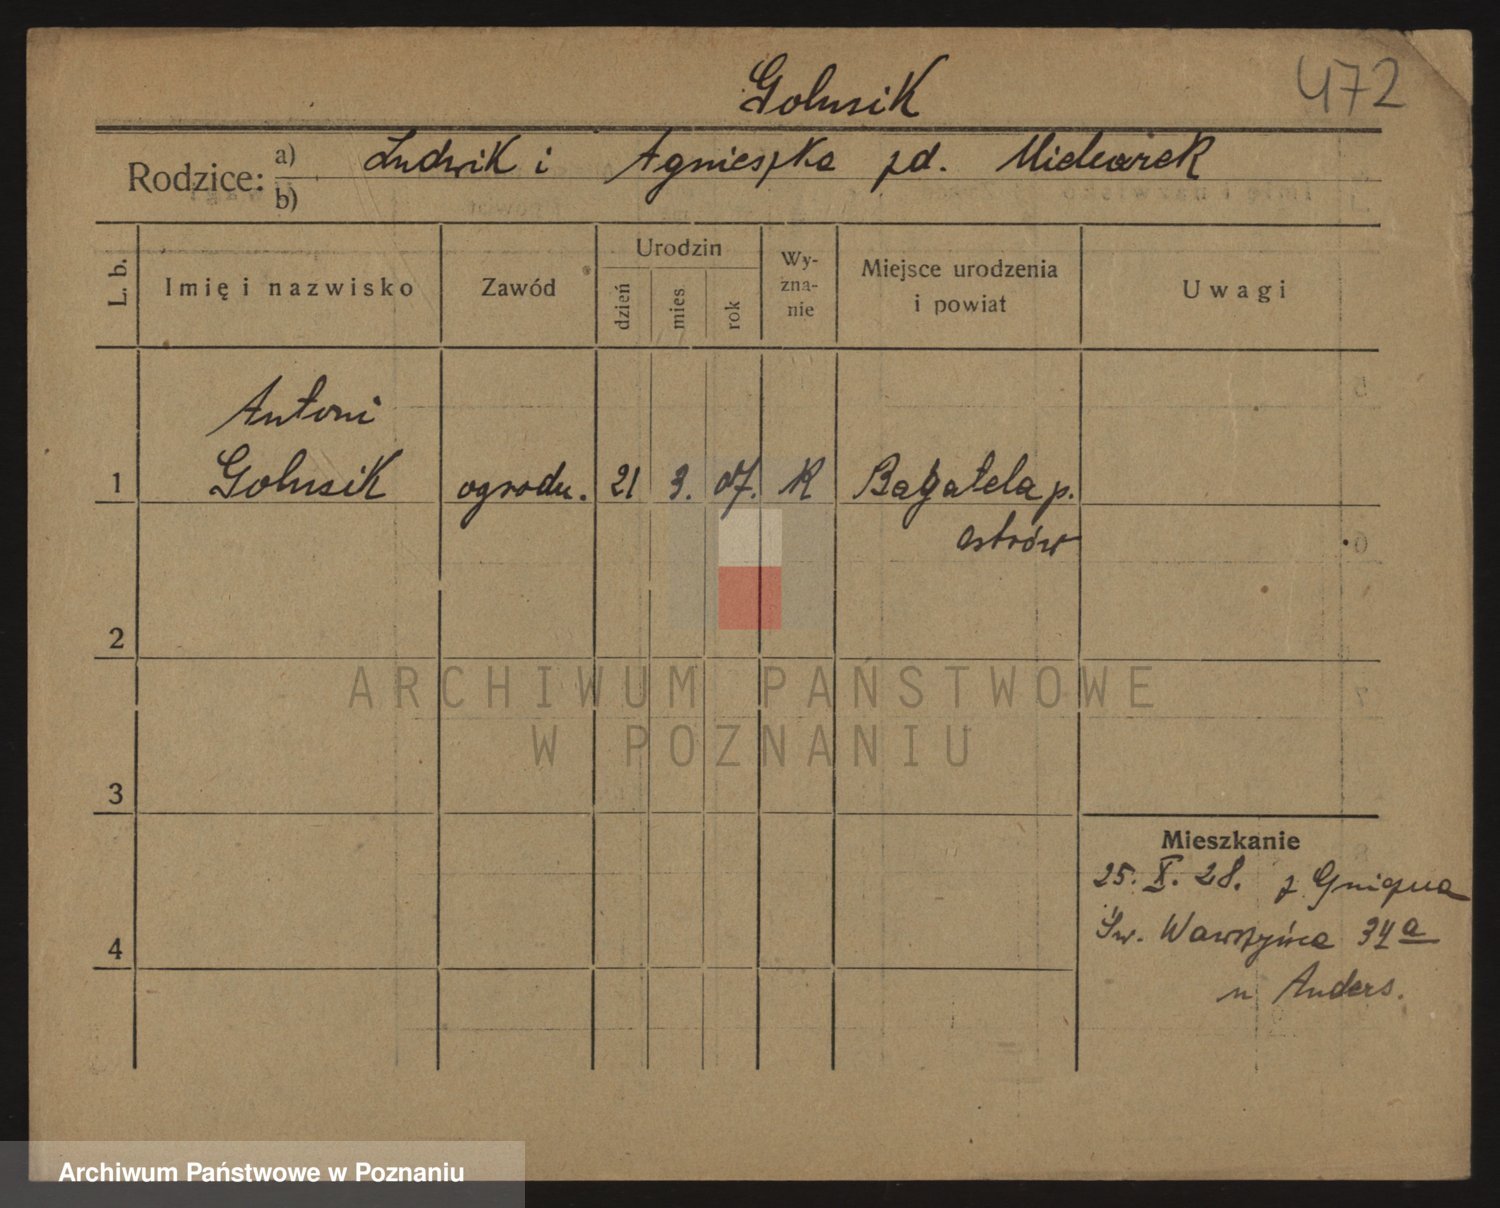 472
Golusik
Rodzice: a) Ludwik i Agnieszka zd. Mielcarek
b)
L. b. Imię i nazwisko Zawód Urodzin dzień mies rok Wy-zna-nie Miejsce urodzenia i powiat Uwagi
Antoni
1 Golusik ogrodn. 21 3. 07. K Bagatela p.
Ostrów
2
ARCHIWUM PAŃSTWOWE
W POZNANIU
3
Mieszkanie
25. X. 28. z
4 Św. Wawrzyńca 34a
u Anders.
Archiwum Państwowe w Poznaniu